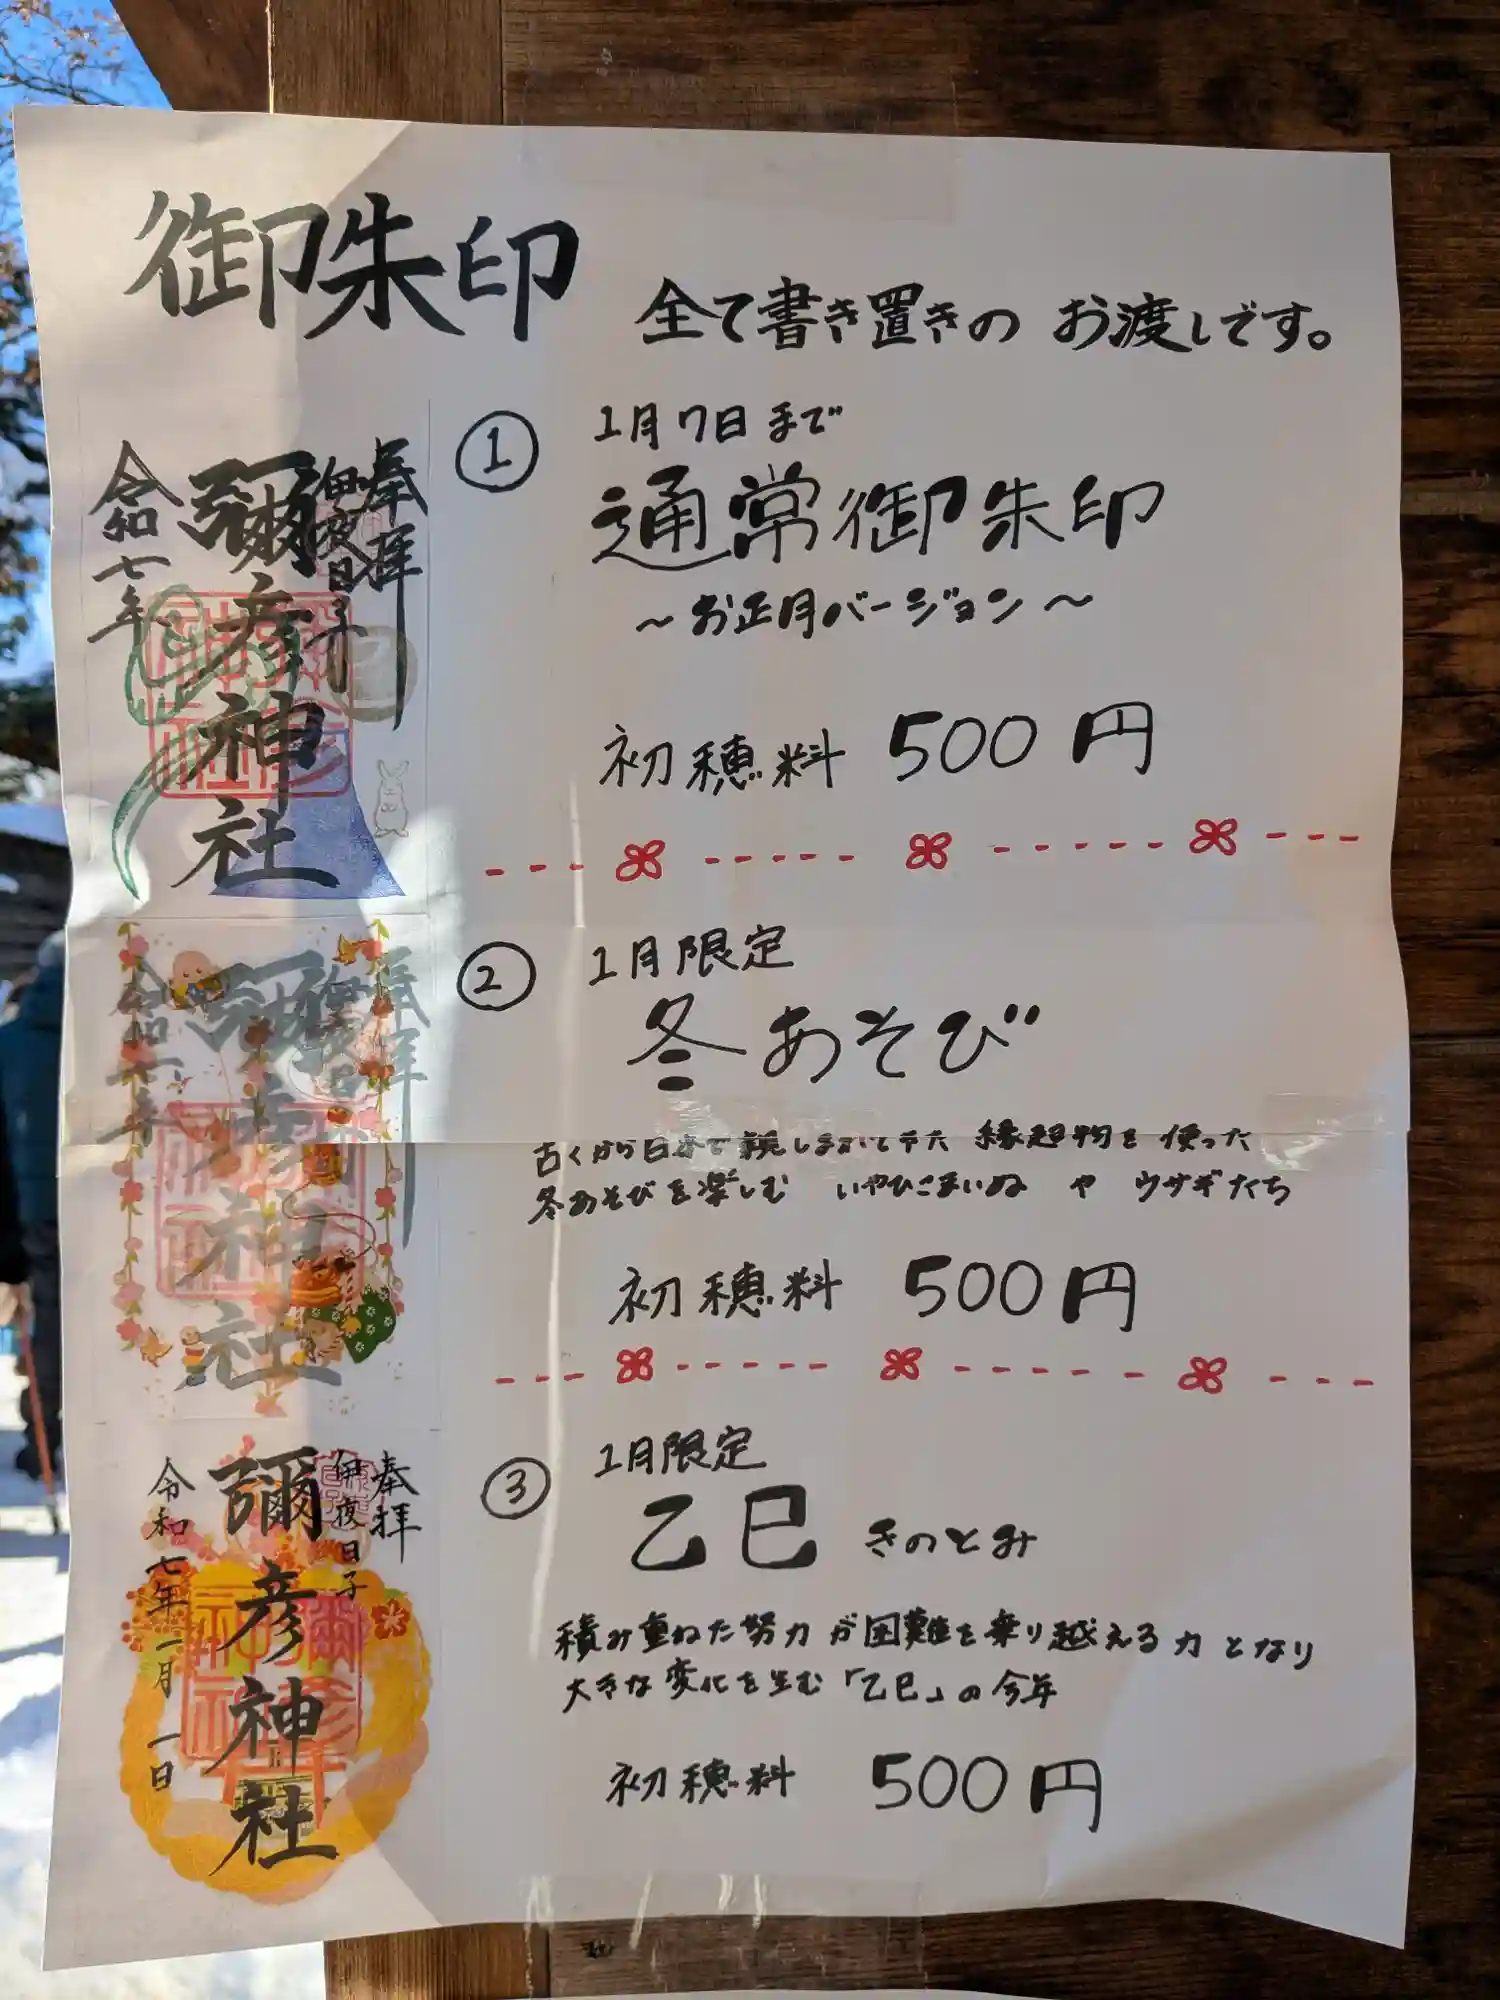 御朱印
全て書き置きの お渡しです。
① 1月7日まで
通常御朱印
～お正月バージョン～
初穂料 500円
奉拝
伊夜日子
彌彦神社
令和七年
② 1月限定
冬あそび
古くから日本で親しまれてきた 縁起物を 使った
冬あそびを楽しむ いやひこまいぬ や ウサギたち
初穂料 500円
奉拝
伊夜日子
彌彦神社
令和七年
③ 1月限定
乙巳 きのとみ
積み重ねた努力が困難を乗り越える力となり
大きな変化を生む「乙巳」の今年
初穂料 500円
奉拝
伊夜日子
彌彦神社
令和七年一月一日